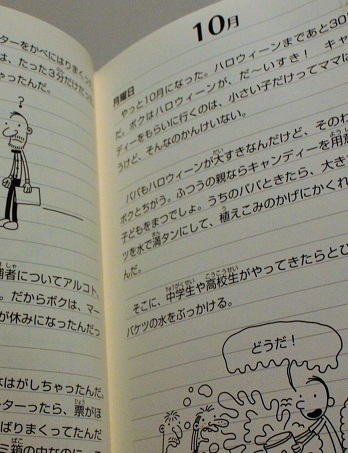 ターをかべにはりまくっ
は、たった3分だけだっ
ったんだ。
?
補者についてアルコト、
。だからボクは、マー
が休みになったんだっ
はがしちゃったんだ。
ターったら、票がほ
ばりまくってたんだ
箱の中なのに。
10月
月曜日
やっと10月になった。ハロウィーンまであと30
だ。ボクはハロウィーンが、だ〜いすき! キャ
ディーをもらいに行くのは、小さい子だけってママに
うけど、そんなのかんけいない。
パパもハロウィーンが大すきなんだけど、そのわ
ボクとちがう。ふつうの親ならキャンディーを用意
子どもをまつでしょ。うちのパパときたら、大き
ツを水で満タンにして、植えこみのかげにかくれ
んだ。
そこに、中学生や高校生がやってきたらと
バケツの水をぶっかける。
どうだ!